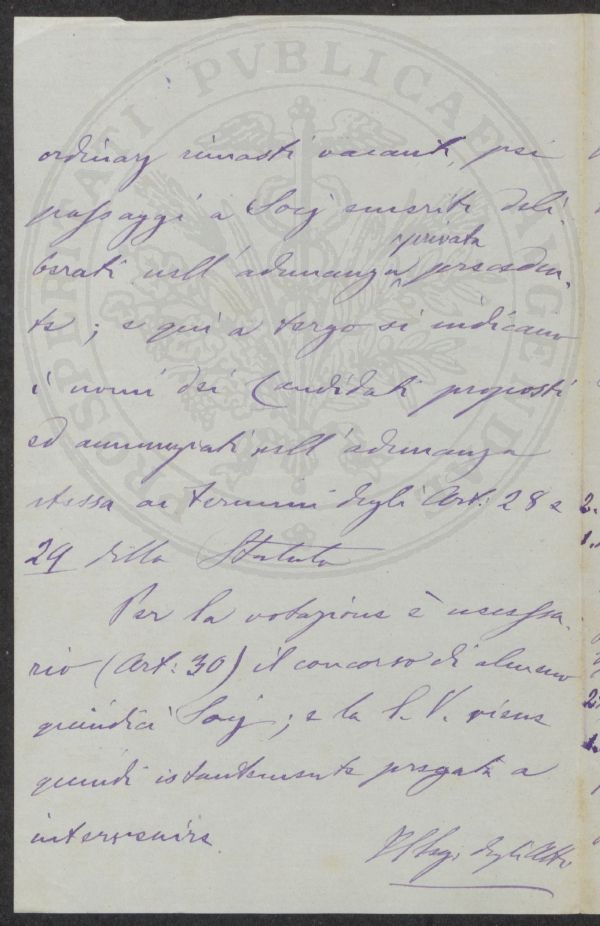 PROSPERITATI PVBLICAE AVGENDAE
ordinarj rimasti vacanti, pei
passaggi a Socj emeriti deli-
berati nell'adunanza privata preceden-
te; e qui a tergo si indicano
i nomi dei Candidati proposti
ed annunziati nell'adunanza
stessa ai termini degli Art: 28 e
29 dello Statuto
Per la votazione è necessa-
rio (Art: 30) il concorso di almeno
quindici Socj; e la S. V. viene
quindi istantemente pregata a
intervenire.
Il Seg. degli Atti
2.
1.
2.
1.